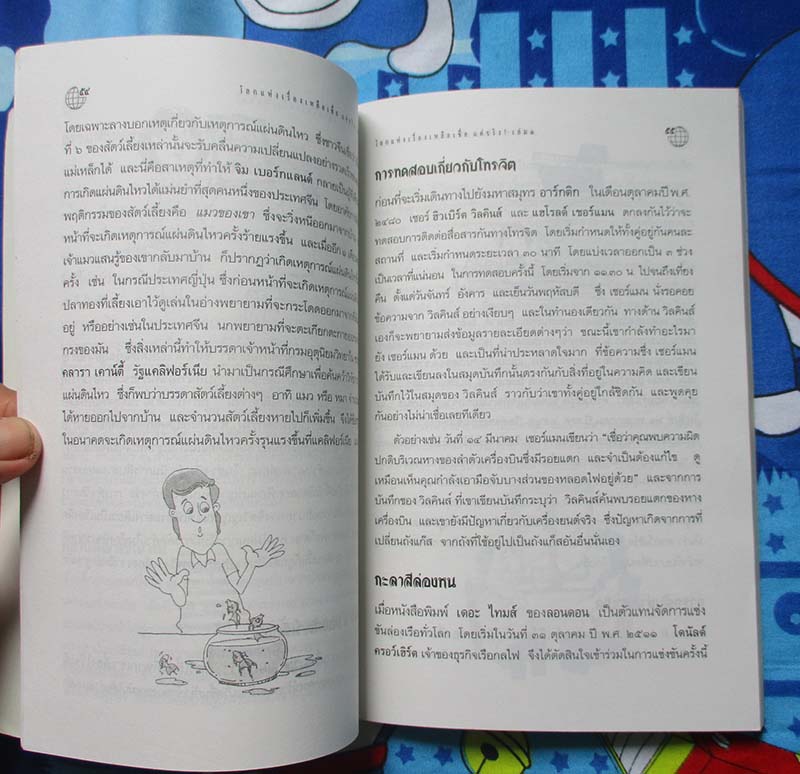 ๕๔
โลกแห่งเรื่องเหลือเชื่อ
โดยเฉพาะลางบอกเหตุเกี่ยวกับเหตุการณ์แผ่นดินไหว
ที่ ๖ ของสัตว์เลี้ยงเหล่านั้นจะรับคลื่นความเปลี่ยนแปลงอย่างรวดเร็ว
แม่เหล็กได้ และนี่คือสาเหตุที่ทำให้ จิม เบอร์กแลนด์ กลายเป็นผู้
การเกิดแผ่นดินไหวได้แม่นยำที่สุดคนหนึ่งของประเทศจีน โดยอาศัย
พฤติกรรมของสัตว์เลี้ยงคือ แมวของเขา ซึ่งจะวิ่งหนีออกมาจาก
หน้าที่จะเกิดเหตุการณ์แผ่นดินไหวครั้งร้ายแรงขึ้น และเมื่ออีก ๑
เจ้าแมวแสนรู้ของเขากลับมาบ้าน ก็ปรากฏว่าเกิดเหตุการณ์แผ่นดินไหว
ครั้ง เช่น ในกรณีประเทศญี่ปุ่น ซึ่งก่อนหน้าที่จะเกิดเหตุการณ์แผ่นดินไหว
ปลาทองที่เลี้ยงเอาไว้ดูเล่นในอ่างพยายามที่จะกระโดดออกมาจาก
อยู่ หรืออย่างเช่นในประเทศจีน นกพยายามที่จะตะเกียกตะกาย
กรงของมัน ซึ่งสิ่งเหล่านี้ทำให้บรรดาเจ้าหน้าที่กรมอุตุนิยมวิทยา
คลารา เคาน์ตี้ รัฐแคลิฟอร์เนีย นำมาเป็นกรณีศึกษาเพื่อค้นคว้า
แผ่นดินไหว ซึ่งก็พบว่าบรรดาสัตว์เลี้ยงต่างๆ อาทิ แมว หรือ หมา
ได้หายออกไปจากบ้าน และจำนวนสัตว์เลี้ยงหายไปก็เพิ่มขึ้น
ในอนาคตจะเกิดเหตุการณ์แผ่นดินไหวครั้งรุนแรงขึ้นที่แคลิฟอร์เนีย
โลกแห่งเรื่องเหลือเชื่อ แต่จริง! เล่ม๑
๕๕
การทดสอบเกี่ยวกับโทรจิต
ก่อนที่จะเริ่มเดินทางไปยังมหาสมุทร อาร์กติก ในเดือนตุลาคมปี พ.ศ.
๒๔๘๐ เซอร์ ฮิวเบิร์ต วิลคินส์ และ แฮโรลด์ เชอร์แมน ตกลงกันไว้ว่าจะ
ทดสอบการติดต่อสื่อสารกันทางโทรจิต โดยเริ่มกำหนดให้ทั้งคู่อยู่กันคนละ
สถานที่ และเริ่มกำหนดระยะเวลา ๓๐ นาที โดยแบ่งเวลาออกเป็น ๓ ช่วง
เป็นเวลาที่แน่นอน ในการทดสอบครั้งนี้ โดยเริ่มจาก ๑๑.๓๐ น. ไปจนถึงเที่ยง
คืน ตั้งแต่วันจันทร์ อังคาร และเย็นวันพฤหัสบดี ซึ่ง เชอร์แมน นั่งรอคอย
ข้อความจาก วิลคินส์ อย่างเงียบๆ และในทำนองเดียวกัน ทางด้าน วิลคินส์
เองก็จะพยายามส่งข้อมูลรายละเอียดต่างๆว่า ขณะนี้เขากำลังทำอะไรมา
ยัง เชอร์แมน ด้วย และเป็นที่น่าประหลาดใจมาก ที่ข้อความซึ่ง เชอร์แมน
ได้รับและเขียนลงในสมุดบันทึกนั้นตรงกันกับสิ่งที่อยู่ในความคิด และเขียน
บันทึกไว้ในสมุดของ วิลคินส์ ราวกับว่าเขาทั้งคู่อยู่ใกล้ชิดกัน และพูดคุย
กันอย่างไม่น่าเชื่อเลยทีเดียว
ตัวอย่างเช่น วันที่ ๑๔ มีนาคม เชอร์แมนเขียนว่า "เชื่อว่าคุณพบความผิด
ปกติบริเวณหางของลำตัวเครื่องบินซึ่งมีรอยแตก และจำเป็นต้องแก้ไข ดู
เหมือนเห็นคุณกำลังเอามือจับบางส่วนของหลอดไฟอยู่ด้วย" และจากการ
บันทึกของ วิลคินส์ ที่เขาเขียนบันทึกระบุว่า วิลคินส์ค้นพบรอยแตกของหาง
เครื่องบิน และเขายังมีปัญหาเกี่ยวกับเครื่องยนต์จริง ซึ่งปัญหาเกิดจากการที่
เปลี่ยนถังแก๊ส จากถังที่ใช้อยู่ไปเป็นถังแก๊สอันอื่นนั่นเอง
กะลาสีล่องหน
เมื่อหนังสือพิมพ์ เดอะ ไทมส์ ของลอนดอน เป็นตัวแทนจัดการแข่ง
ขันล่องเรือทั่วโลก โดยเริ่มในวันที่ ๓๑ ตุลาคม ปี พ.ศ. ๒๕๑๑ โดนัลด์
ครอว์เฮิร์ต เจ้าของธุรกิจเรือกลไฟ จึงได้ตัดสินใจเข้าร่วมในการแข่งขันครั้งนี้